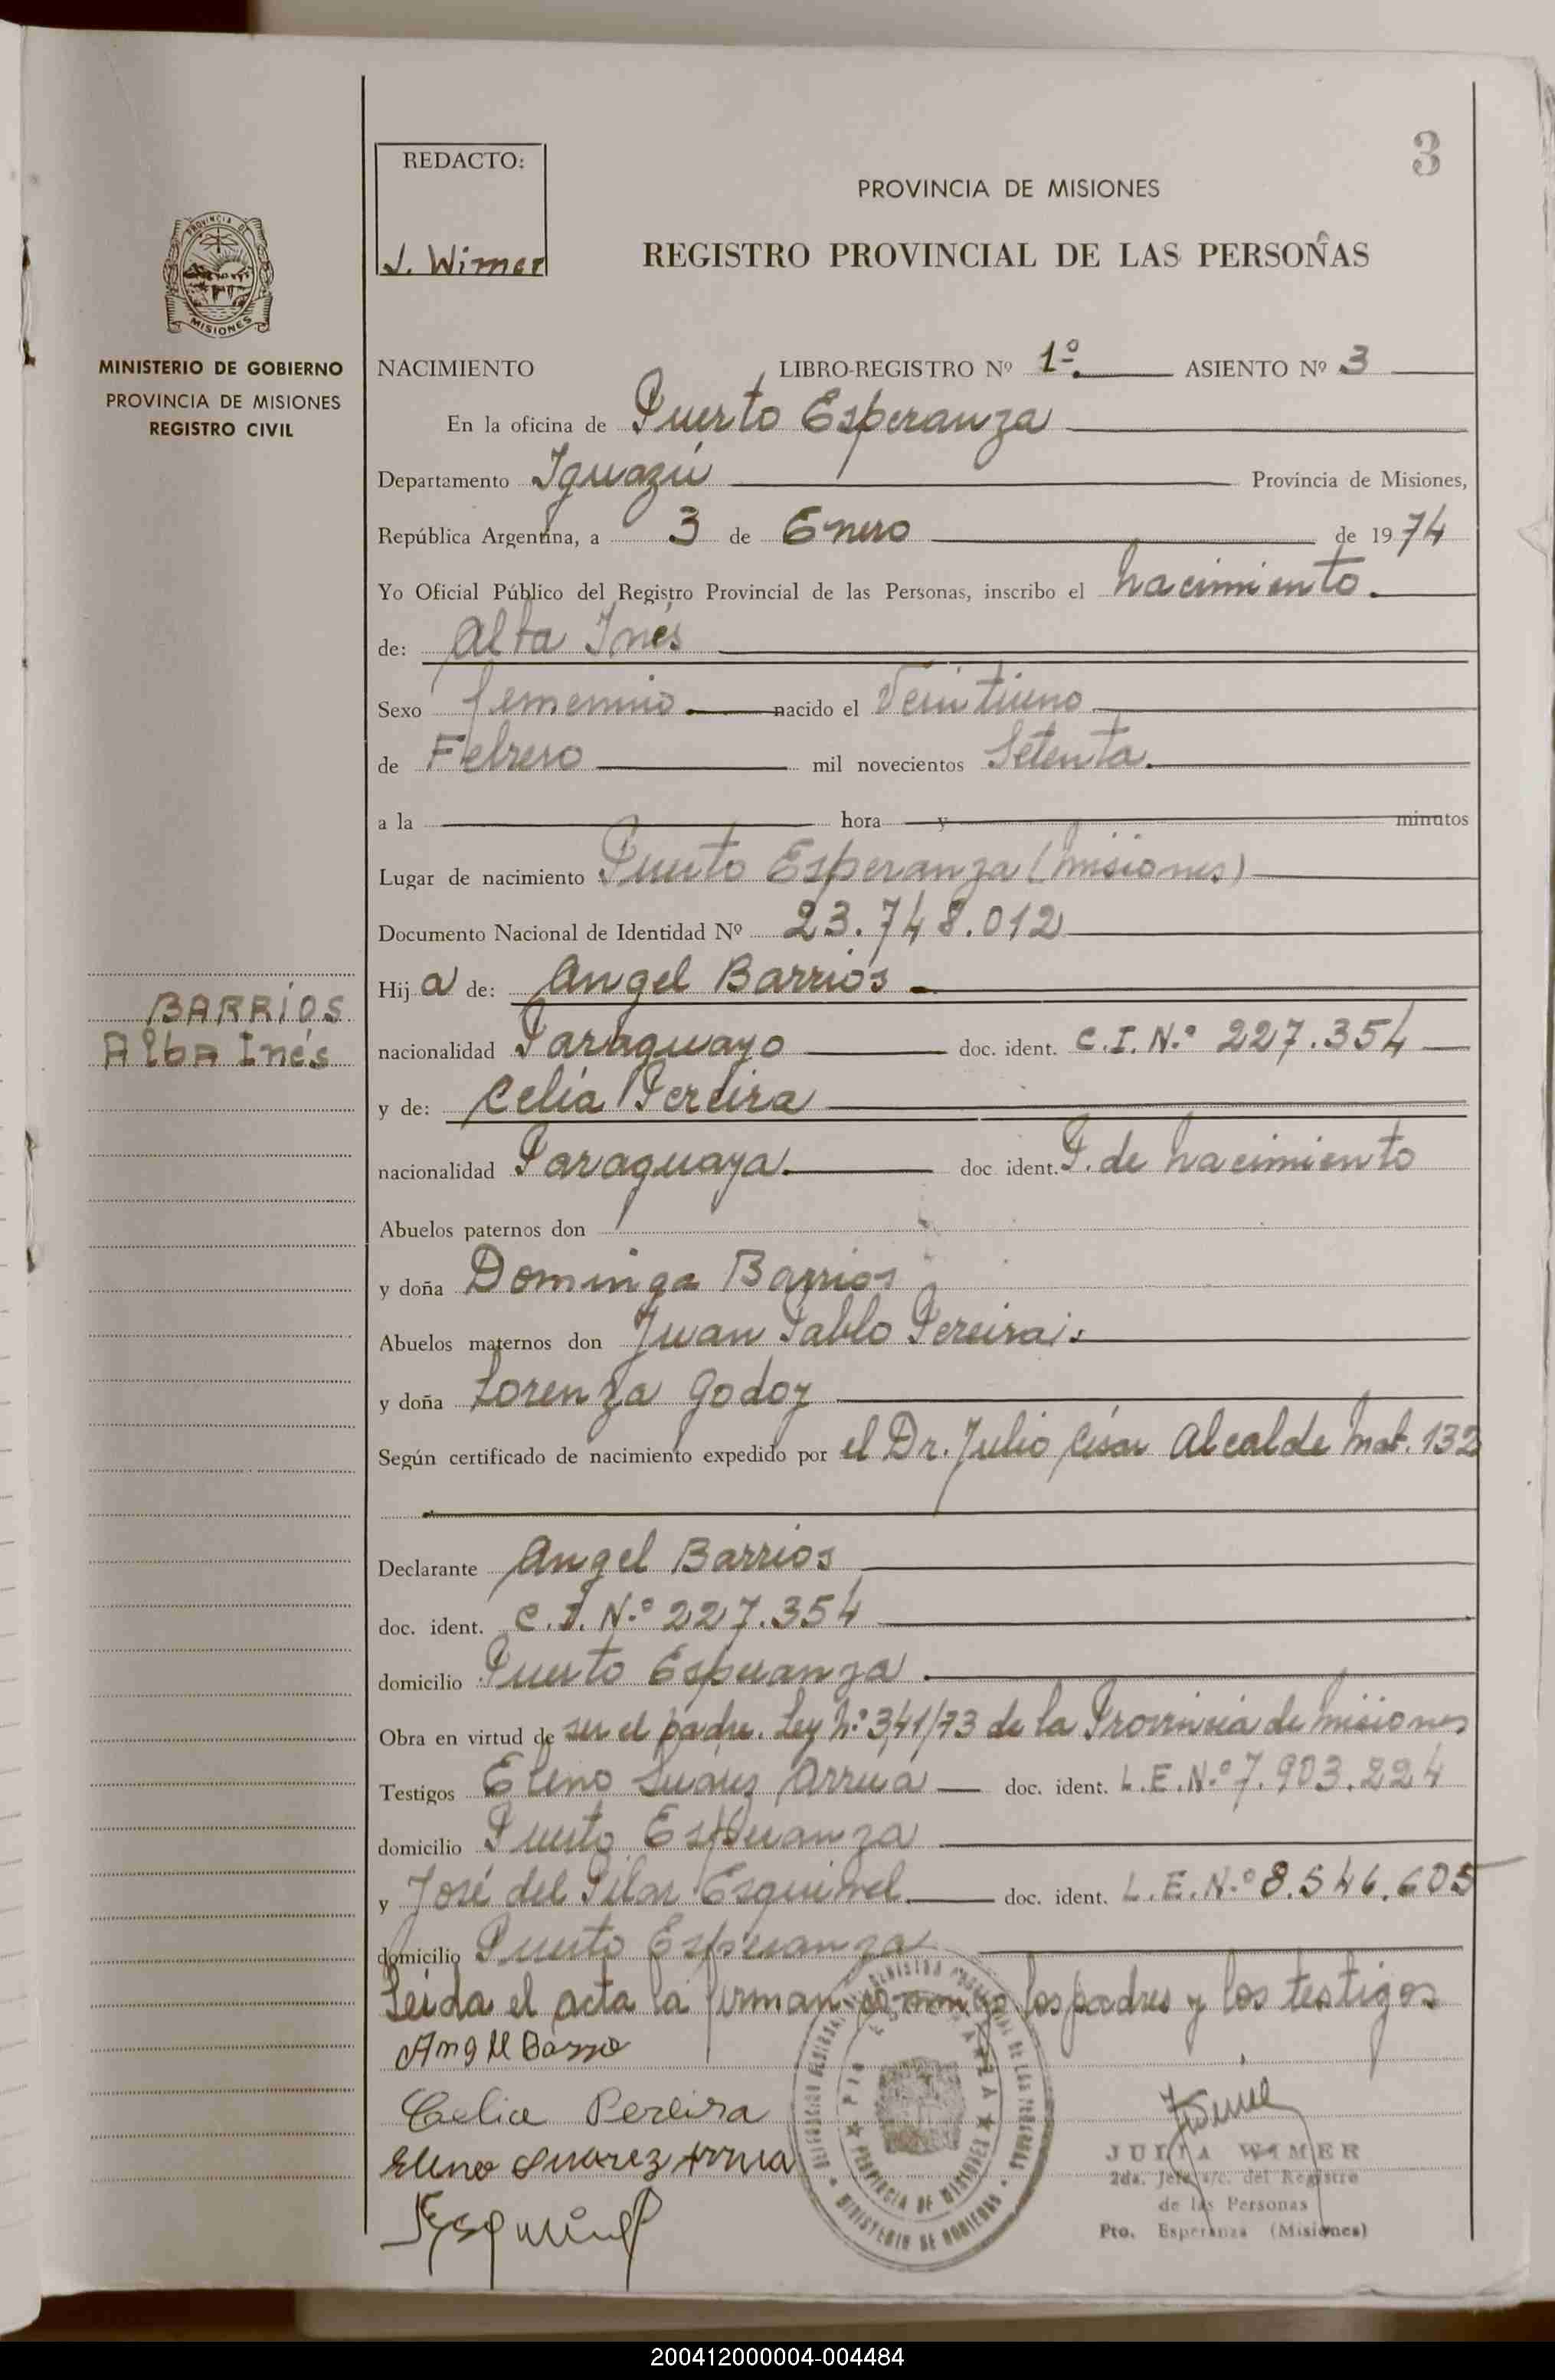 3
REDACTO:
J. Wimer
PROVINCIA DE MISIONES
REGISTRO PROVINCIAL DE LAS PERSONAS
PROVINCIA DE
MISIONES
MINISTERIO DE GOBIERNO
PROVINCIA DE MISIONES
REGISTRO CIVIL
NACIMIENTO LIBRO-REGISTRO Nº 1º. ASIENTO Nº 3
En la oficina de Puerto Esperanza
Departamento Iguazú Provincia de Misiones,
República Argentina, a 3 de Enero de 1974
Yo Oficial Público del Registro Provincial de las Personas, inscribo el nacimiento.
de: Alba Inés
Sexo femenino nacido el Veintiuno
de Febrero mil novecientos Setenta.
a la hora y minutos
Lugar de nacimiento Puerto Esperanza (Misiones)
Documento Nacional de Identidad Nº 23.748.012
BARRIOS
Alba Inés
Hija de: Angel Barrios
nacionalidad Paraguayo doc. ident. C.I.N.º 227.354
y de: Celia Pereira
nacionalidad Paraguaya. doc ident. P. de nacimiento
Abuelos paternos don
y doña Dominga Barrios
Abuelos maternos don Juan Pablo Pereira
y doña Lorenza Godoy
Según certificado de nacimiento expedido por el Dr. Julio César Alcalde Mat. 132
Declarante Angel Barrios
doc. ident. C.I.N.º 227.354
domicilio Puerto Esperanza
Obra en virtud de ser el padre. Ley N.º 341/73 de la Provincia de Misiones
Testigos Eleno Suarez Arrua doc. ident. L.E.N.º 7.903.224
domicilio Puerto Esperanza
y José del Pilar Esquivel doc. ident. L.E.N.º 8.546.605
domicilio Puerto Esperanza
Leida el acta la firman conmigo los padres y los testigos
Angel Barrio
Celia Pereira
Eleno Suarez Arrua
PROVINCIA DE MISIONES
MINISTERIO DE GOBIERNO
JULIA WIMER
2da. Jefe a/c. del Registro
de las Personas
Pto. Esperanza (Misiones)
200412000004-004484